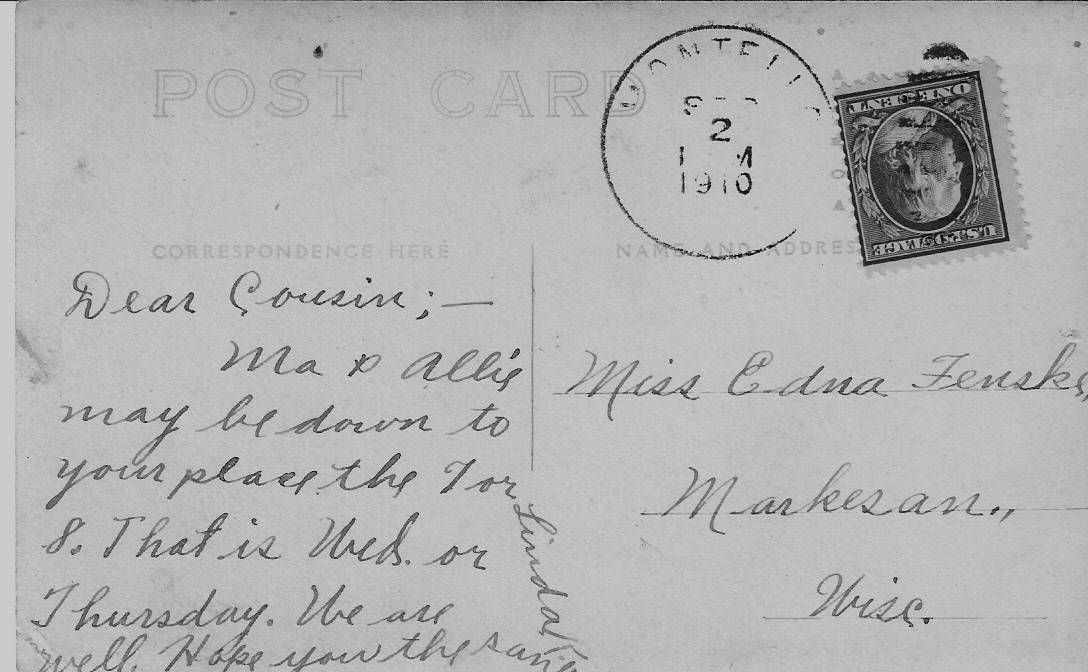 POST CARD
MONTELLO
SEP
2
1 M
1910
ONE CENT
U.S. POSTAGE
CORRESPONDENCE HERE
NAME AND ADDRESS
Dear Cousin;—
Ma & Allie
may be down to
your place the 7 or
8. That is Wed. or
Thursday. We are
well. Hope you the same
Linda
Miss Edna Fenske,
Markesan.,
Wisc.